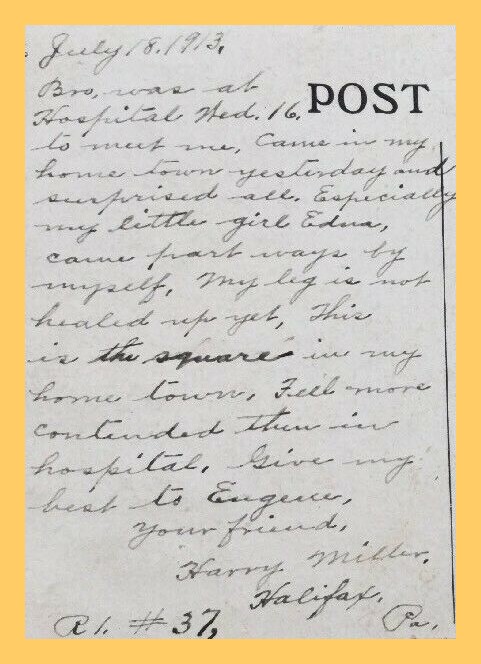 July 18. 1913.
Bro, was at
Hospital Wed. 16. POST
to meet me, Came in my
home town yesterday and
surprised all. Especially
my little girl Edna,
came part ways by
myself, My leg is not
healed up yet, This
is the square in my
home town, Fell more
contended then in
hospital. Give my
best to Eugene,
Your friend,
Harry Miller,
Halifax,
R 1. # 37, Pa.